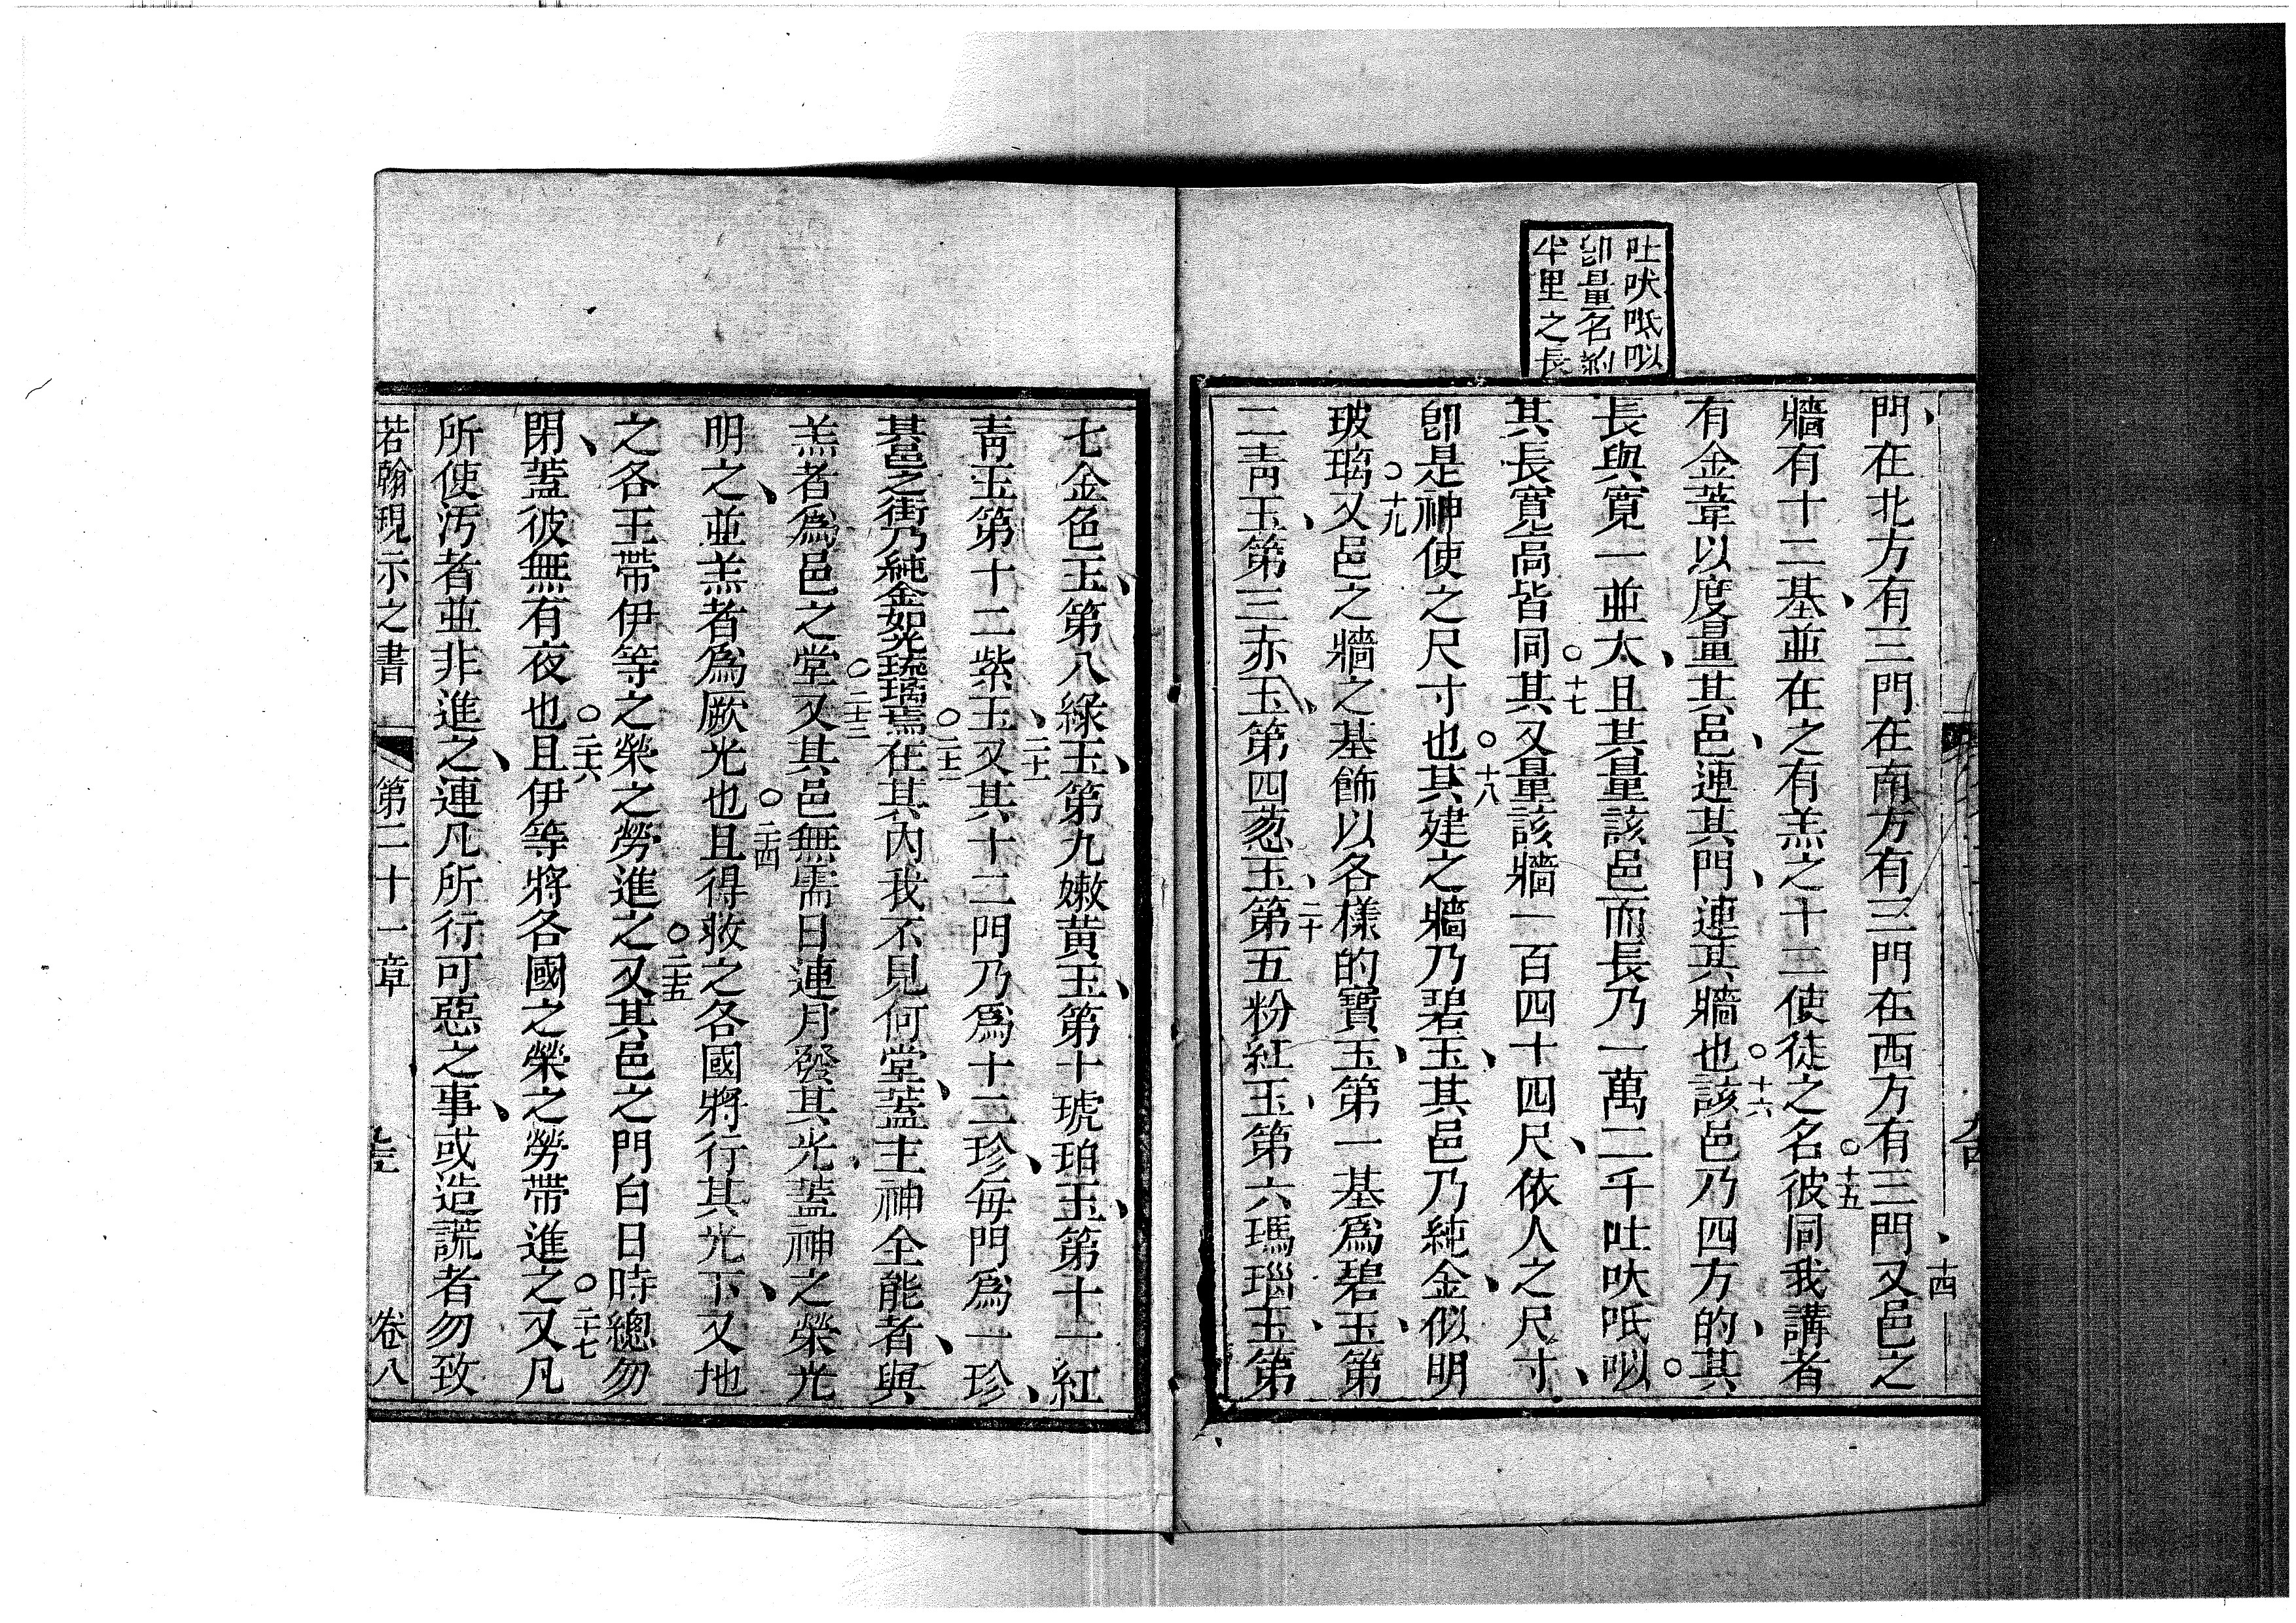 吐吠呧㕽
卽量名約
半里之長
門、在北方有三門在南方有三門在西方有三門、十四又邑之
牆有十二基、並在之有羔之十二使徒之名○十五彼同我講者
有金葦以度量其邑、連其門、連其牆也○十六該邑乃四方的、其
長與寬一並太、且其量該邑而長乃一萬二千吐吠呧㕽○
其長寬高皆同其○十七又量該牆一百四十四尺、依人之尺寸、
卽是神使之尺寸也○十八其建之牆乃碧玉、其邑乃純金、似明
玻璃○十九又邑之牆之基飾以各樣的寶玉、第一基爲碧玉、第
二靑玉、第三赤玉、第四葱玉、二十第五粉紅玉、第六瑪瑙玉、第
七金色玉、第八綠玉、第九嫩黃玉、第十琥珀玉、第十一紅
靑玉第十二紫玉、二十一又其十二門乃爲十二珍、每門爲一珍、
其邑之街乃純金如光琉璃焉○二十二在其內我不見何堂、蓋主神全能者、與
羔者爲邑之堂○二十三又其邑無需日連月發其光、蓋神之榮光
明之、並羔者爲厥光也○二十四且得救之各國將行其光下、又地
之各王帶伊等之榮之勞進之○二十五又其邑之門白日時總勿
閉、蓋彼無有夜也○二十六且伊等將各國之榮之勞帶進之○二十七又凡
所使汚者並非進之、連凡所行可惡之事、或造謊者勿致
若翰現示之書 第二十一章 卷八